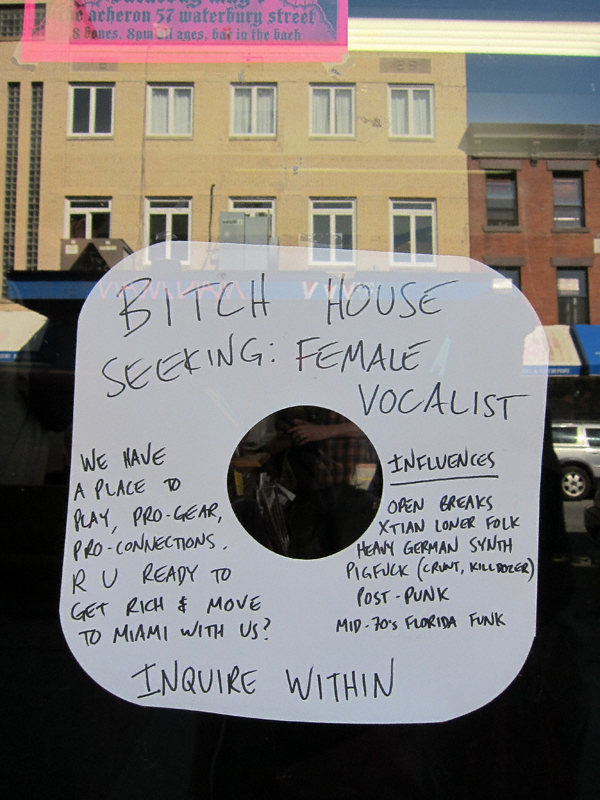 the acheron 57 waterbury street
8 bones, 8pm all ages, bar in the back
BITCH HOUSE
SEEKING: FEMALE
VOCALIST
WE HAVE
A PLACE TO
PLAY, PRO-GEAR,
PRO-CONNECTIONS.
R U READY TO
GET RICH & MOVE
TO MIAMI WITH US?
INFLUENCES
OPEN BREAKS
XTIAN LONER FOLK
HEAVY GERMAN SYNTH
PIGFUCK (CRUNT, KILLDOZER)
POST-PUNK
MID-70's FLORIDA FUNK
INQUIRE WITHIN